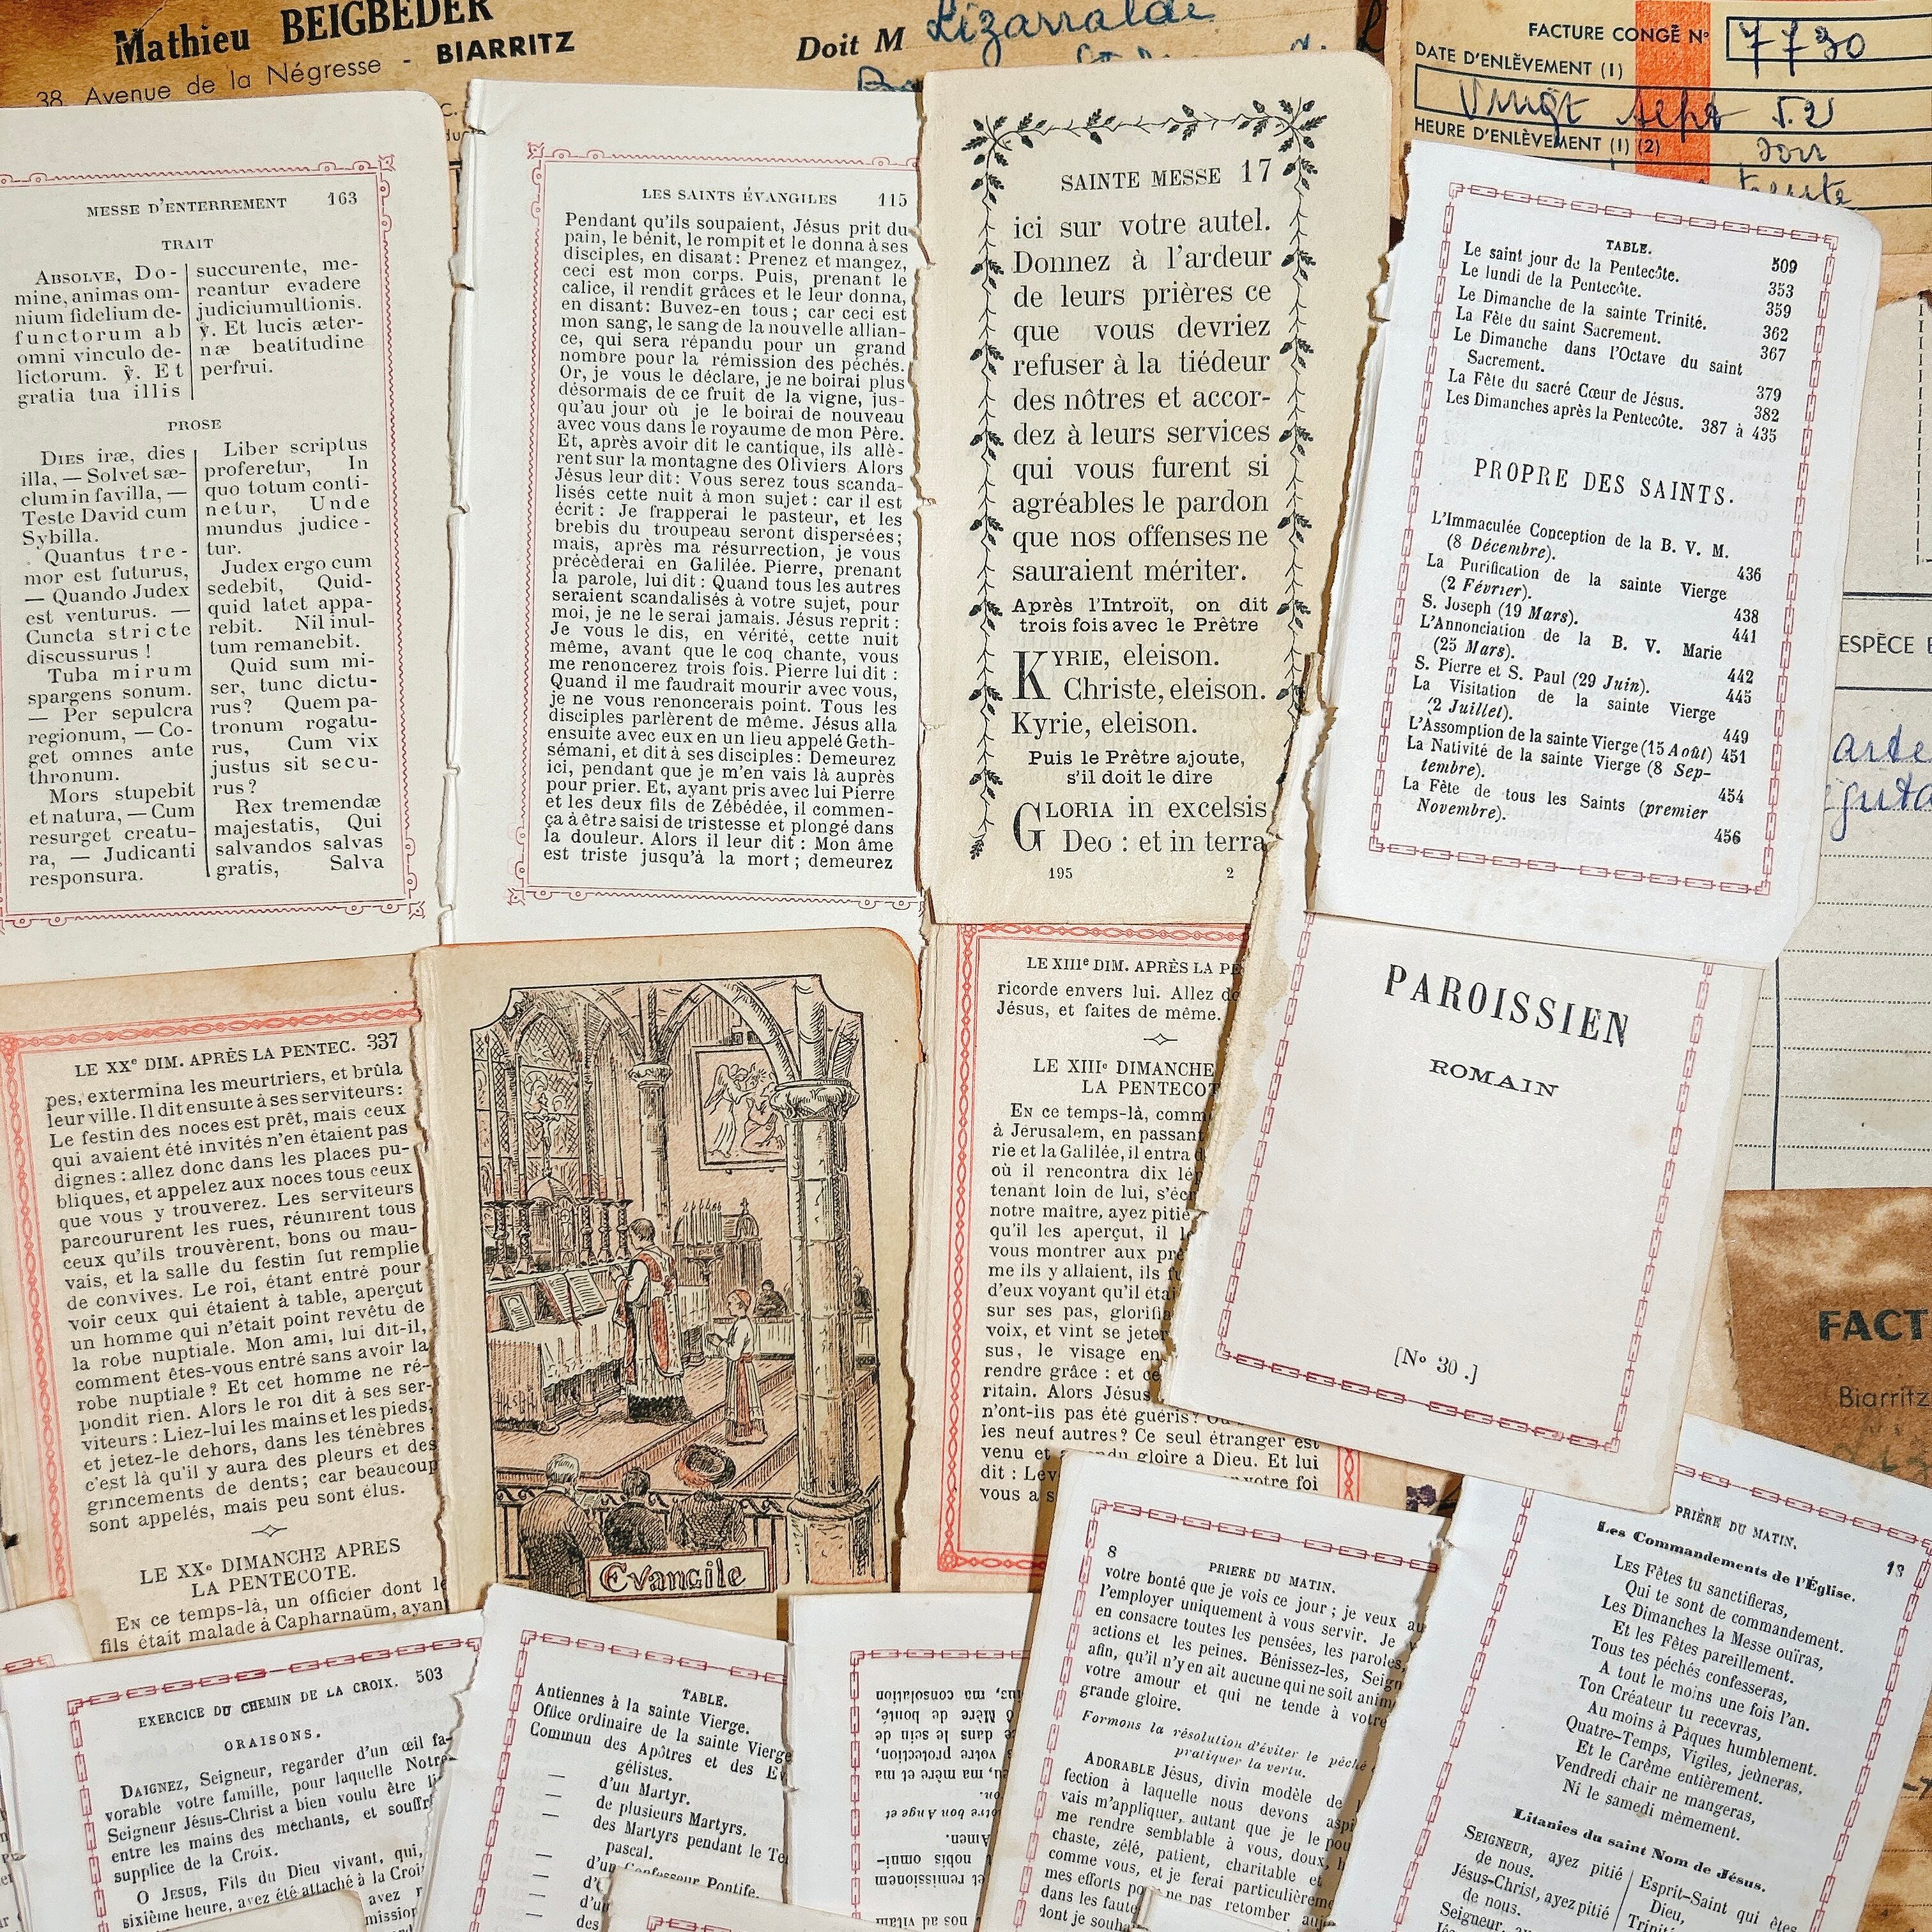 Mathieu BEIGBEDER
38, Avenue de la Négresse - BIARRITZ
Doit M Lizarralde
FACTURE CONGÉ Nº 7730
DATE D'ENLÈVEMENT (1)
Vingt sept 52
HEURE D'ENLÈVEMENT (1) (2)
MESSE D'ENTERREMENT 163
TRAIT
ABSOLVE, Do-
mine, animas om-
nium fidelium de-
functorum ab
omni vinculo de-
lictorum. ℣. Et
gratia tua illis
succurente, me-
reantur evadere
judicium ultionis.
℣. Et lucis æter-
næ beatitudine
perfrui.
PROSE
DIES iræ, dies
illa, — Solvet sæ-
clum in favilla, —
Teste David cum
Sybilla.
Quantus tre-
mor est futurus,
— Quando Judex
est venturus. —
Cuncta stricte
discussurus !
Tuba mirum
spargens sonum.
— Per sepulcra
regionum, — Co-
get omnes ante
thronum.
Mors stupebit
et natura, — Cum
resurget creatu-
ra, — Judicanti
responsura.
Liber scriptus
proferetur, In
quo totum conti-
netur, Unde
mundus judice-
tur.
Judex ergo cum
sedebit, Quid-
quid latet appa-
rebit. Nil inul-
tum remanebit.
Quid sum mi-
ser, tunc dictu-
rus? Quem pa-
tronum rogatu-
rus, Cum vix
justus sit secu-
rus?
Rex tremendæ
majestatis, Qui
salvandos salvas
gratis, Salva
LES SAINTS ÉVANGILES 115
Pendant qu'ils soupaient, Jésus prit du
pain, le bénit, le rompit et le donna à ses
disciples, en disant : Prenez et mangez,
ceci est mon corps. Puis, prenant le
calice, il rendit grâces et le leur donna,
en disant : Buvez-en tous ; car ceci est
mon sang, le sang de la nouvelle allian-
ce, qui sera répandu pour un grand
nombre pour la rémission des péchés.
Or, je vous le déclare, je ne boirai plus
désormais de ce fruit de la vigne, jus-
qu'au jour où je le boirai de nouveau
avec vous dans le royaume de mon Père.
Et, après avoir dit le cantique, ils allè-
rent sur la montagne des Oliviers Alors
Jésus leur dit : Vous serez tous scanda-
lisés cette nuit à mon sujet : car il est
écrit : Je frapperai le pasteur, et les
brebis du troupeau seront dispersées ;
mais, après ma résurrection, je vous
précèderai en Galilée. Pierre, prenant
la parole, lui dit : Quand tous les autres
seraient scandalisés à votre sujet, pour
moi, je ne le serai jamais. Jésus reprit :
Je vous le dis, en vérité, cette nuit
même, avant que le coq chante, vous
me renoncerez trois fois. Pierre lui dit :
Quand il me faudrait mourir avec vous,
je ne vous renoncerais point. Tous les
disciples parlèrent de même. Jésus alla
ensuite avec eux en un lieu appelé Geth-
sémani, et dit à ses disciples : Demeurez
ici, pendant que je m'en vais là auprès
pour prier. Et, ayant pris avec lui Pierre
et les deux fils de Zébédée, il commen-
ça à être saisi de tristesse et plongé dans
la douleur. Alors il leur dit : Mon âme
est triste jusqu'à la mort ; demeurez
SAINTE MESSE 17
ici sur votre autel.
Donnez à l'ardeur
de leurs prières ce
que vous devriez
refuser à la tiédeur
des nôtres et accor-
dez à leurs services
qui vous furent si
agréables le pardon
que nos offenses ne
sauraient mériter.
Après l'Introït, on dit
trois fois avec le Prêtre
KYRIE, eleison.
Christe, eleison.
Kyrie, eleison.
Puis le Prêtre ajoute,
s'il doit le dire
GLORIA in excelsis
Deo : et in terra
195 2
TABLE. 509
Le saint jour de la Pentecôte. 353
Le lundi de la Pentecôte. 359
Le Dimanche de la sainte Trinité. 362
La Fête du saint Sacrement. 367
Le Dimanche dans l'Octave du saint
Sacrement. 379
La Fête du sacré Cœur de Jésus. 382
Les Dimanches après la Pentecôte. 387 à 435
PROPRE DES SAINTS.
L'Immaculée Conception de la B. V. M.
(8 Décembre). 436
La Purification de la sainte Vierge
(2 Février). 438
S. Joseph (19 Mars). 441
L'Annonciation de la B. V. Marie
(25 Mars). 442
S. Pierre et S. Paul (29 Juin). 445
La Visitation de la sainte Vierge
(2 Juillet). 449
L'Assomption de la sainte Vierge (15 Août) 451
La Nativité de la sainte Vierge (8 Sep-
tembre). 454
La Fête de tous les Saints (premier
Novembre). 456
ESPÈCE
LE XXe DIM. APRÈS LA PENTEC. 337
pes, extermina les meurtriers, et brûla
leur ville. Il dit ensuite à ses serviteurs :
Le festin des noces est prêt, mais ceux
qui avaient été invités n'en étaient pas
dignes : allez donc dans les places pu-
bliques, et appelez aux noces tous ceux
que vous y trouverez. Les serviteurs
parcoururent les rues, réunirent tous
ceux qu'ils trouvèrent, bons ou mau-
vais, et la salle du festin fut remplie
de convives. Le roi, étant entré pour
voir ceux qui étaient à table, aperçut
un homme qui n'était point revêtu de
la robe nuptiale. Mon ami, lui dit-il,
comment êtes-vous entré sans avoir la
robe nuptiale ? Et cet homme ne ré-
pondit rien. Alors le roi dit à ses ser-
viteurs : Liez-lui les mains et les pieds,
et jetez-le dehors, dans les ténèbres
c'est là qu'il y aura des pleurs et des
grincements de dents ; car beaucoup
sont appelés, mais peu sont élus.
LE XXe DIMANCHE APRÈS
LA PENTECOTE.
EN ce temps-là, un officier dont le
fils était malade à Capharnaüm, ayan
Evangile
LE XIIIe DIM. APRÈS LA PE
ricorde envers lui. Allez
Jésus, et faites de même.
LE XIIIe DIMANCHE
LA PENTECOT
EN ce temps-là, comm
à Jérusalem, en passant
rie et la Galilée, il entra d
où il rencontra dix lép
tenant loin de lui, s'écr
notre maître, ayez pitié
qu'il les aperçut, il l
vous montrer aux prê
me ils y allaient, ils fu
d'eux voyant qu'il étai
sur ses pas, glorifia
voix, et vint se jeter
sus, le visage en
rendre grâce : et ce
ritain. Alors Jésus
n'ont-ils pas été guéris ?
les neuf autres ? Ce seul étranger est
venu et gloire à Dieu. Et lui
dit : Lev votre foi
vous a s
PAROISSIEN
ROMAIN
[Nº 30.]
FACT
Biarritz
EXERCICE DU CHEMIN DE LA CROIX. 503
ORAISONS.
DAIGNEZ, Seigneur, regarder d'un œil fa-
vorable votre famille, pour laquelle Notre
Seigneur Jésus-Christ a bien voulu être li
entre les mains des mechants, et souffr
supplice de la Croix.
O JESUS, Fils du Dieu vivant, qui,
sixième heure, avez été attaché à la Croix
TABLE.
Antiennes à la sainte Vierge.
Office ordinaire de la sainte Vierge
Commun des Apôtres et des Ev
gélistes.
— d'un Martyr.
— de plusieurs Martyrs.
— des Martyrs pendant le Te
pascal.
— d'un Confesseur Pontife.
ns, ma consolation
ô Mère de bonté,
ce dans le sein de
votre protection,
ma mère et ma
votre bon Ange et
Amen.
nobis omni-
et remissionem
nos ad vitam
8 PRIERE DU MATIN.
votre bonté que je vois ce jour ; je veux au
l'employer uniquement à vous servir. Je v
en consacre toutes les pensées, les paroles,
actions et les peines. Bénissez-les, Seign
afin, qu'il n'y en ait aucune qui ne soit anim
votre amour et qui ne tende à votre
grande gloire.
Formons la résolution d'éviter le péché
pratiquer la vertu.
ADORABLE Jésus, divin modèle de
fection à laquelle nous devons aspi
vais m'appliquer, autant que je le pou
me rendre semblable à vous, doux, h
chaste, zélé, patient, charitable et
comme vous, et je ferai particulièreme
mes efforts po ne pas retomber auj
dans les faute
dont je souha
PRIÈRE DU MATIN. 13
Les Commandements de l'Église.
LES Fêtes tu sanctifieras,
Qui te sont de commandement.
Les Dimanches la Messe ouïras,
Et les Fêtes pareillement.
Tous tes péchés confesseras,
A tout le moins une fois l'an.
Ton Créateur tu recevras,
Au moins à Pâques humblement.
Quatre-Temps, Vigiles, jeûneras,
Et le Carême entièrement.
Vendredi chair ne mangeras,
Ni le samedi mêmement.
Litanies du saint Nom de Jésus.
SEIGNEUR, ayez pitié
de nous.
Jésus-Christ, ayez pitié
de nous.
Esprit-Saint qui êtes
Dieu,